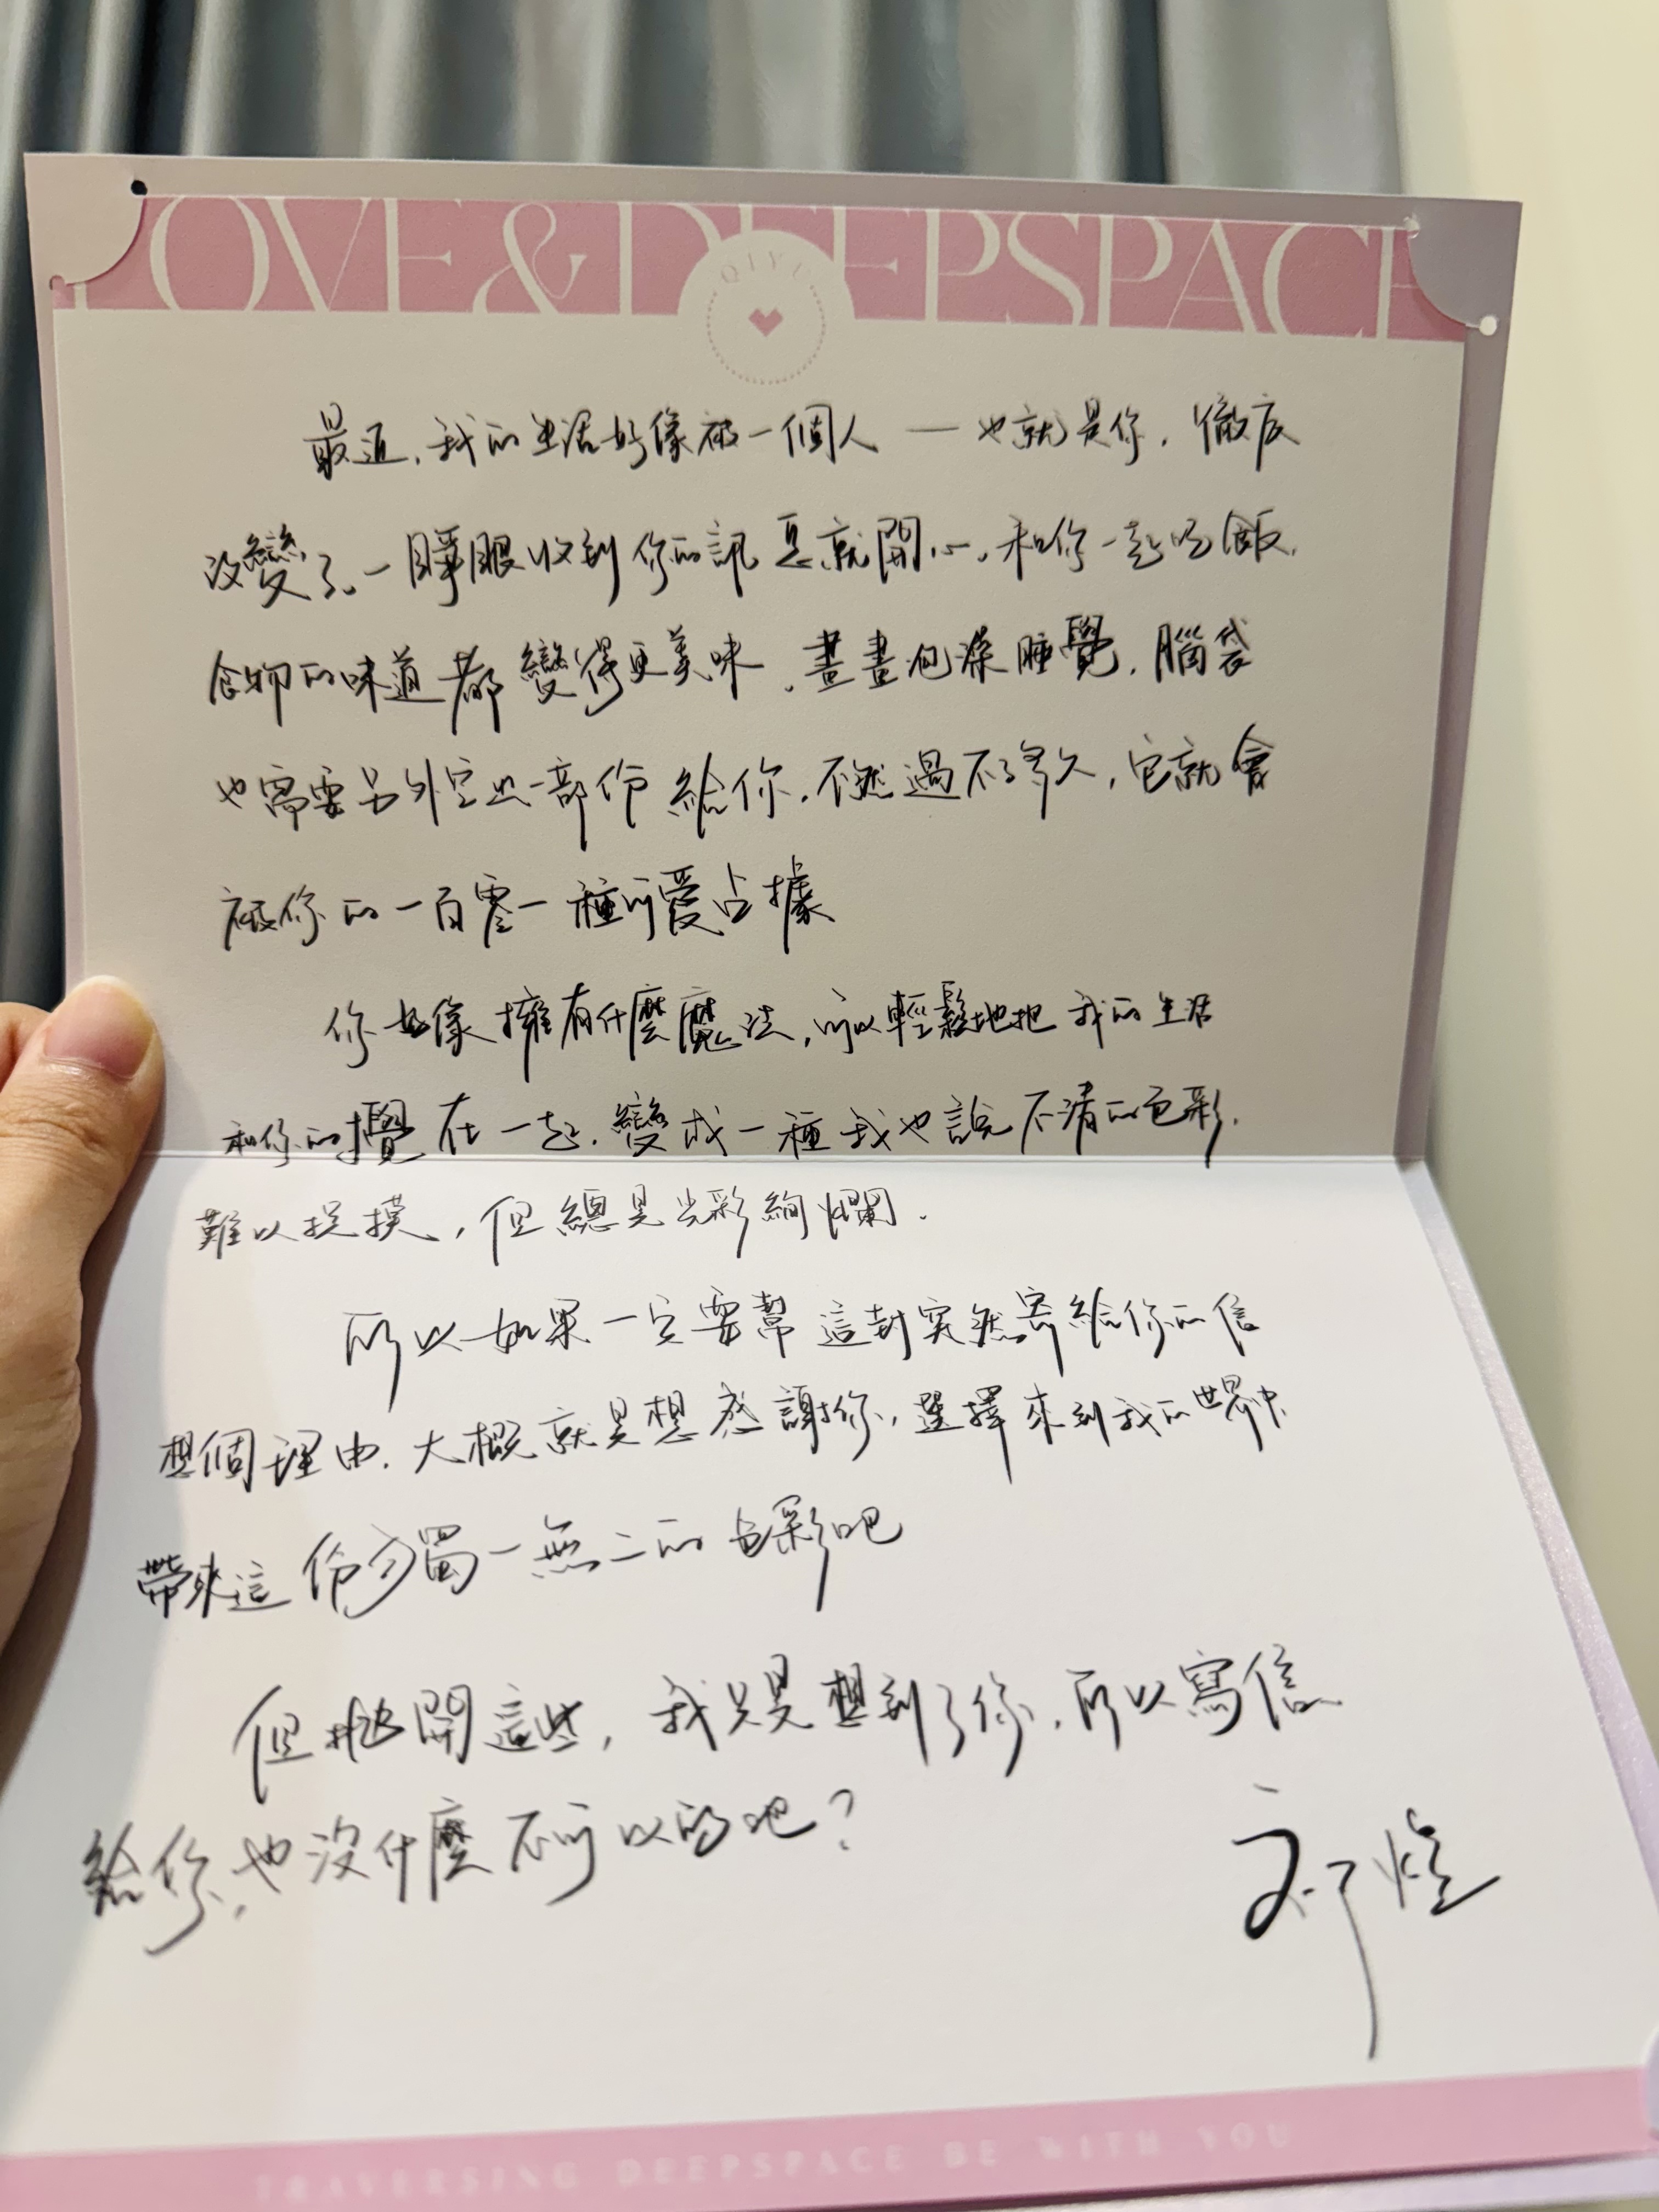 LOVE & DEEPSPACE
QIYU
最近，我的生活好像被一個人——也就是你，徹底
改變了。一睜眼收到你的訊息就開心。和你一起吃飯，
食物的味道都變得更美味。畫畫泡澡睡覺，腦袋
也需要另外空出一部份給你，不然過不了多久，它就會
被你的一百零一種可愛占據
你好像擁有什麼魔法，可以輕鬆地把我的生活
和你的攪在一起，變成一種我也說不清的色彩，
難以捉摸，但總是光彩絢爛。
所以如果一定要幫這封突然寄給你的信
想個理由，大概就是想感謝你，選擇來到我的世界中，
帶來這份獨一無二的色彩吧
但拋開這些，我只是想到了你，所以寫信
給你，也沒什麼不可以的吧？
祁煜
TRAVERSING DEEPSPACE BE WITH YOU